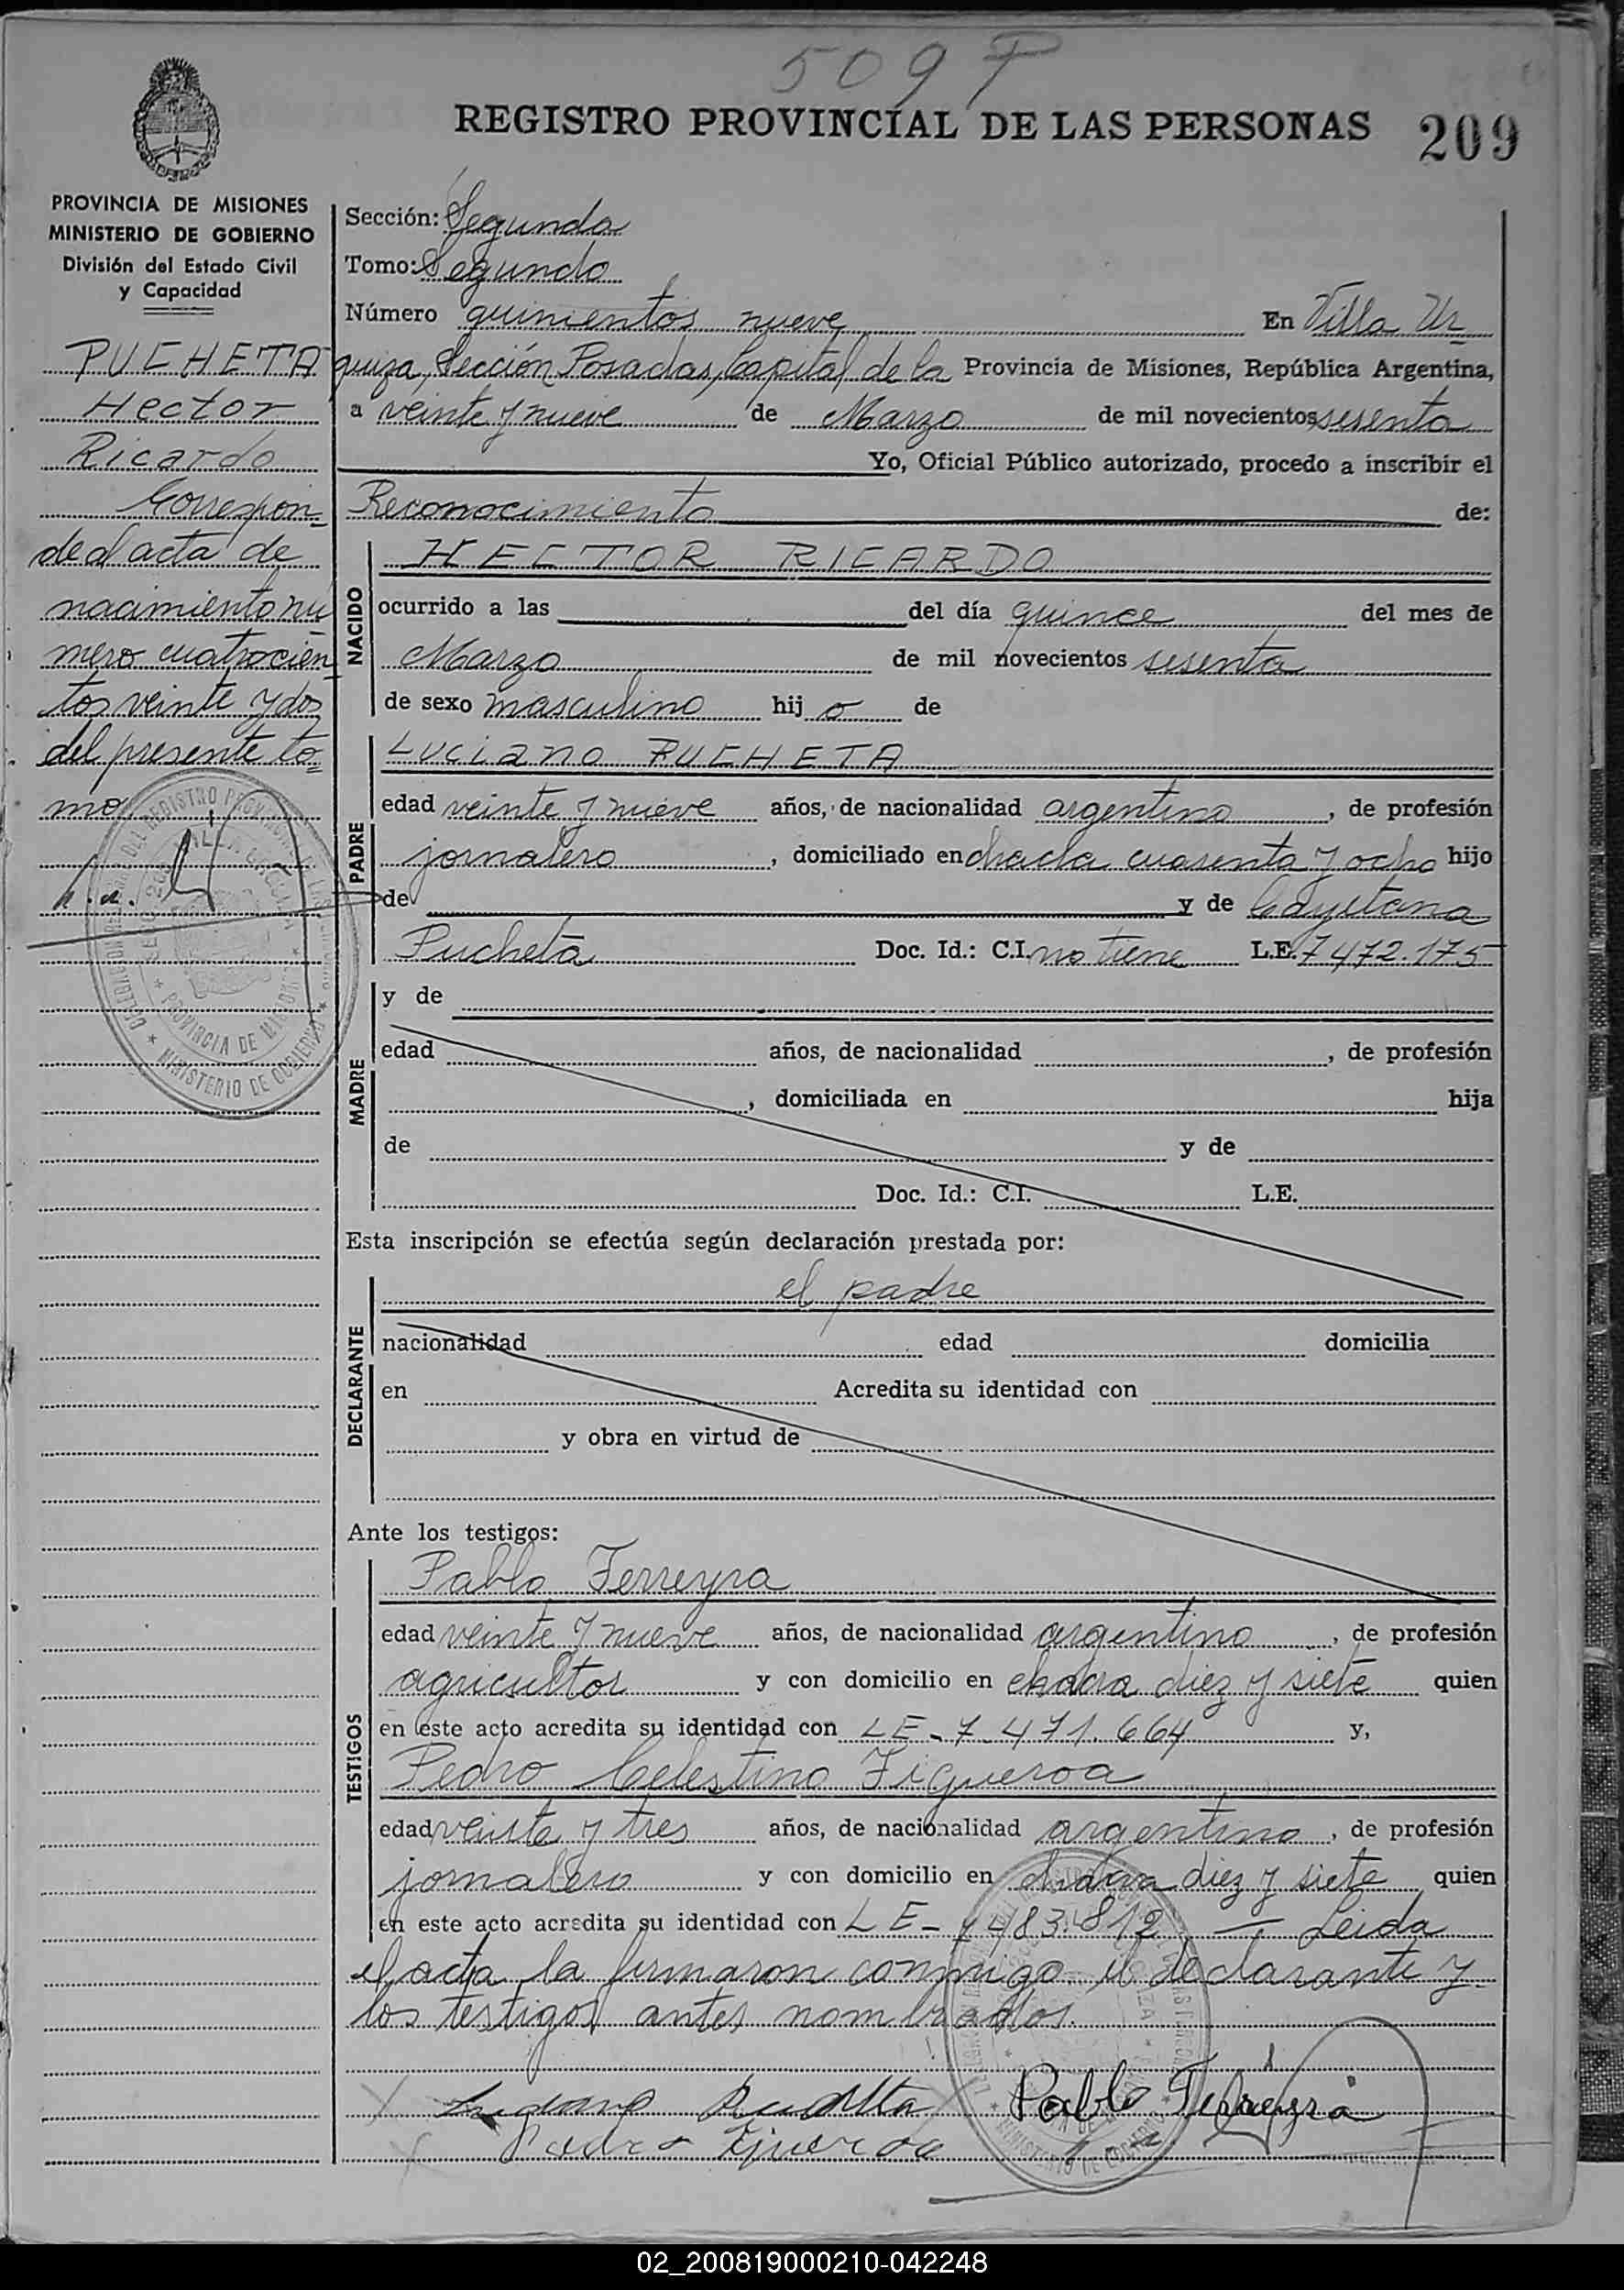 509 P
REGISTRO PROVINCIAL DE LAS PERSONAS 209
PROVINCIA DE MISIONES
MINISTERIO DE GOBIERNO
División del Estado Civil
y Capacidad
PUCHETA
Hector
Ricardo
Correspon-
de al acta de
nacimiento nu
mero cuatrocien
tos veinte y dos
del presente to=
mo
Sección: Segunda
Tomo: Segundo
Número quinientos nueve En Villa Ur
quiza, Sección Posadas, Capital de la Provincia de Misiones, República Argentina,
a veinte y nueve de Marzo de mil novecientos sesenta
Yo, Oficial Público autorizado, procedo a inscribir el
Reconocimiento de:
NACIDO
HECTOR RICARDO
ocurrido a las del día quince del mes de
Marzo de mil novecientos sesenta
de sexo masculino hij o de
PADRE
Luciano PUCHETA
edad veinte y nueve años, de nacionalidad argentino, de profesión
jornalero, domiciliado en chacla cuarenta y ocho hijo
de y de Cayetana
Pucheta Doc. Id.: C.I. no tiene L.E. 7472.175
MADRE
y de
edad años, de nacionalidad , de profesión
, domiciliada en hija
de y de
Doc. Id.: C.I. L.E.
Esta inscripción se efectúa según declaración prestada por:
DECLARANTE
el padre
nacionalidad edad domicilia
en Acredita su identidad con
y obra en virtud de
Ante los testigos:
TESTIGOS
Pablo Ferreyra
edad veinte y nueve años, de nacionalidad argentino, de profesión
agricultor y con domicilio en chacra diez y siete quien
en este acto acredita su identidad con LE-7.471.664 y,
Pedro Celestino Figueroa
edad veinte y tres años, de nacionalidad argentino, de profesión
jornalero y con domicilio en chacra diez y siete quien
en este acto acredita su identidad con LE- 7483.812 — Leida
el acta la firmaron conmigo el declarante y
los testigos antes nombrados.
Pablo Ferreyra
Pedro Figueroa
02_200819000210-042248